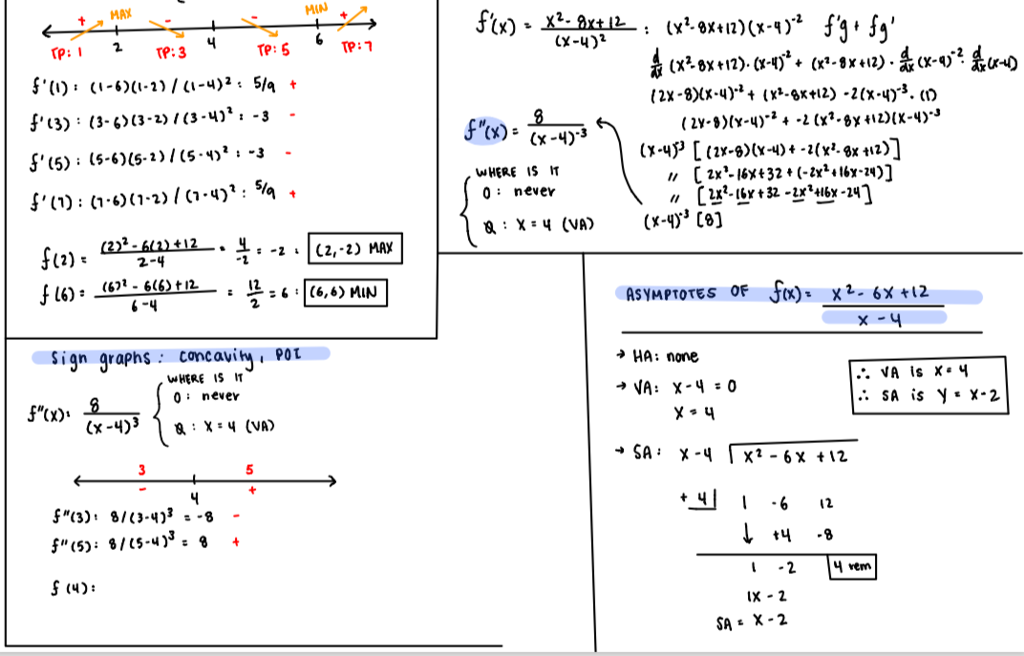 + MAX - - MIN +
TP: 1 2 TP: 3 4 TP: 5 6 TP: 7
f'(1): (1-6)(1-2) / (1-4)² : 5/9 +
f'(3): (3-6)(3-2) / (3-4)² : -3 -
f'(5): (5-6)(5-2) / (5-4)² : -3 -
f'(7): (7-6)(7-2) / (7-4)² : 5/9 +
f(2) = (2)² - 6(2) + 12 / 2-4 = 4/-2 = -2 : (2,-2) MAX
f(6) = (6)² - 6(6) + 12 / 6-4 = 12/2 = 6 : (6,6) MIN
f'(x) = x² - 8x + 12 / (x-4)² : (x² - 8x + 12)(x-4)⁻² f'g + fg'
d/dx (x² - 8x + 12) · (x-4)⁻² + (x² - 8x + 12) · d/dx (x-4)⁻² · d/dx (x-4)
(2x-8)(x-4)⁻² + (x² - 8x + 12) -2(x-4)⁻³ · (1)
(2x-8)(x-4)⁻² + -2(x² - 8x + 12)(x-4)⁻³
f''(x) = 8 / (x-4)⁻³
(x-4)⁻³ [(2x-8)(x-4) + -2(x² - 8x + 12)]
" [2x² - 16x + 32 + (-2x² + 16x - 24)]
" [2x² - 16x + 32 - 2x² + 16x - 24]
(x-4)⁻³ [8]
WHERE IS IT
0 : never
Ø : x = 4 (VA)
Sign graphs : concavity, POI
f''(x) : 8 / (x-4)³
WHERE IS IT
0 : never
Ø : x = 4 (VA)
3 5
- 4 +
f''(3) : 8/(3-4)³ = -8 -
f''(5) : 8/(5-4)³ = 8 +
f(4) :
ASYMPTOTES OF f(x) = x² - 6x + 12 / x - 4
→ HA: none
→ VA: x - 4 = 0
x = 4
∴ VA is x = 4
∴ SA is y = x - 2
→ SA: x - 4 x² - 6x + 12
+ 4 1 -6 12
↓ +4 -8
1 -2 4 rem
1x - 2
SA = x - 2